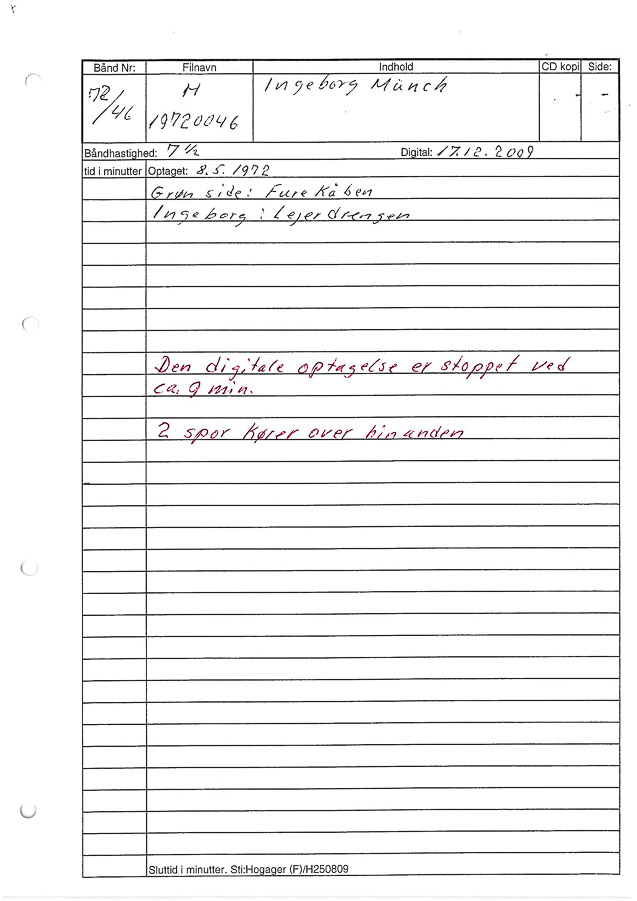 Bånd Nr: Filnavn Indhold CD kopi Side:
72/46 M Ingeborg Münch - -
19720046
Båndhastighed: 7 1/2 Digital: 17.12.2009
tid i minutter Optaget: 8.5.1972
Grøn side: Fure Kåben
Ingeborg: Lejerdrengen
Den digitale optagelse er stoppet ved
ca. 9 min.
2 spor kører over hinanden
Sluttid i minutter. Sti:Hogager (F)/H250809